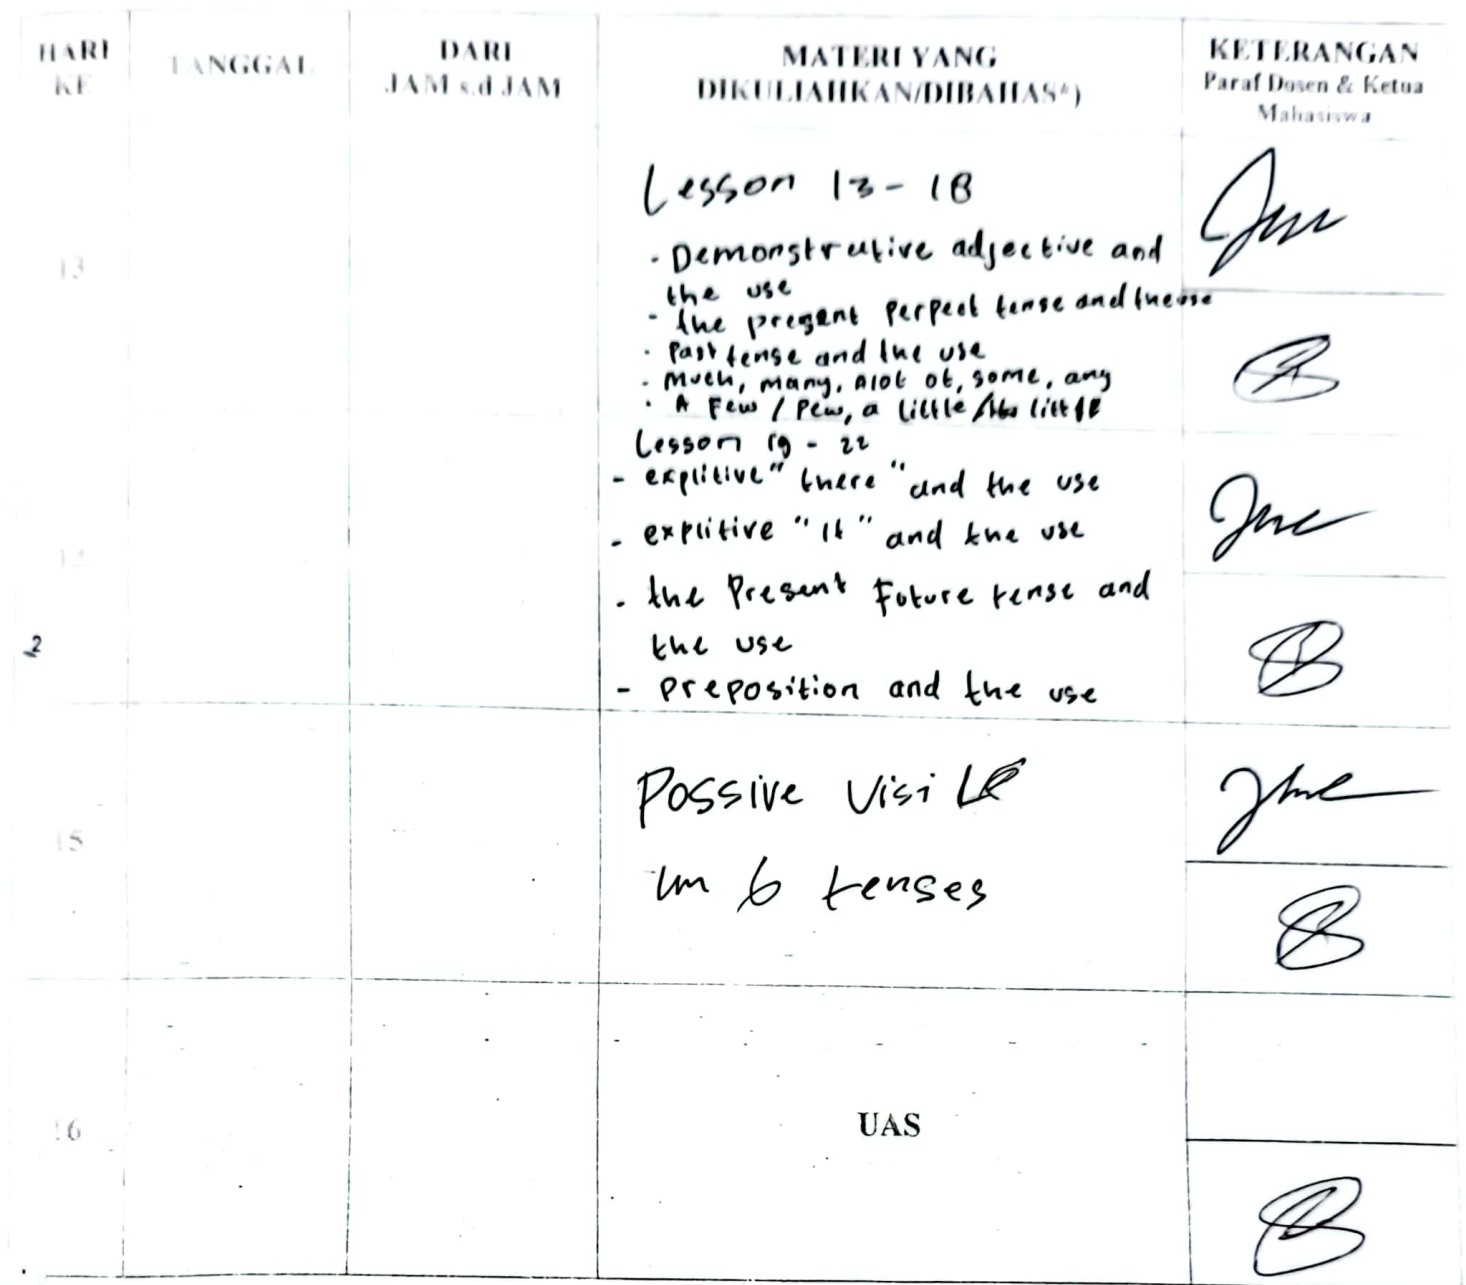 HARI KE
TANGGAL
DARI
JAM s.d JAM
MATERI YANG
DIKULIAHKAN/DIBAHAS*)
KETERANGAN
Paraf Dosen & Ketua
Mahasiswa
13
Lesson 13-18
· Demonstrative adjective and
the use
- the present perpect tense and the use
· Past tense and the use
· Much, many, Alot of, some, any
· A Few / Pew, a little / little
Lesson 19 - 22
- explitive "there" and the use
- explitive "It" and the use
- the Present Future tense and
the use
- preposition and the use
2
15
Possive
6 tenses
16
UAS